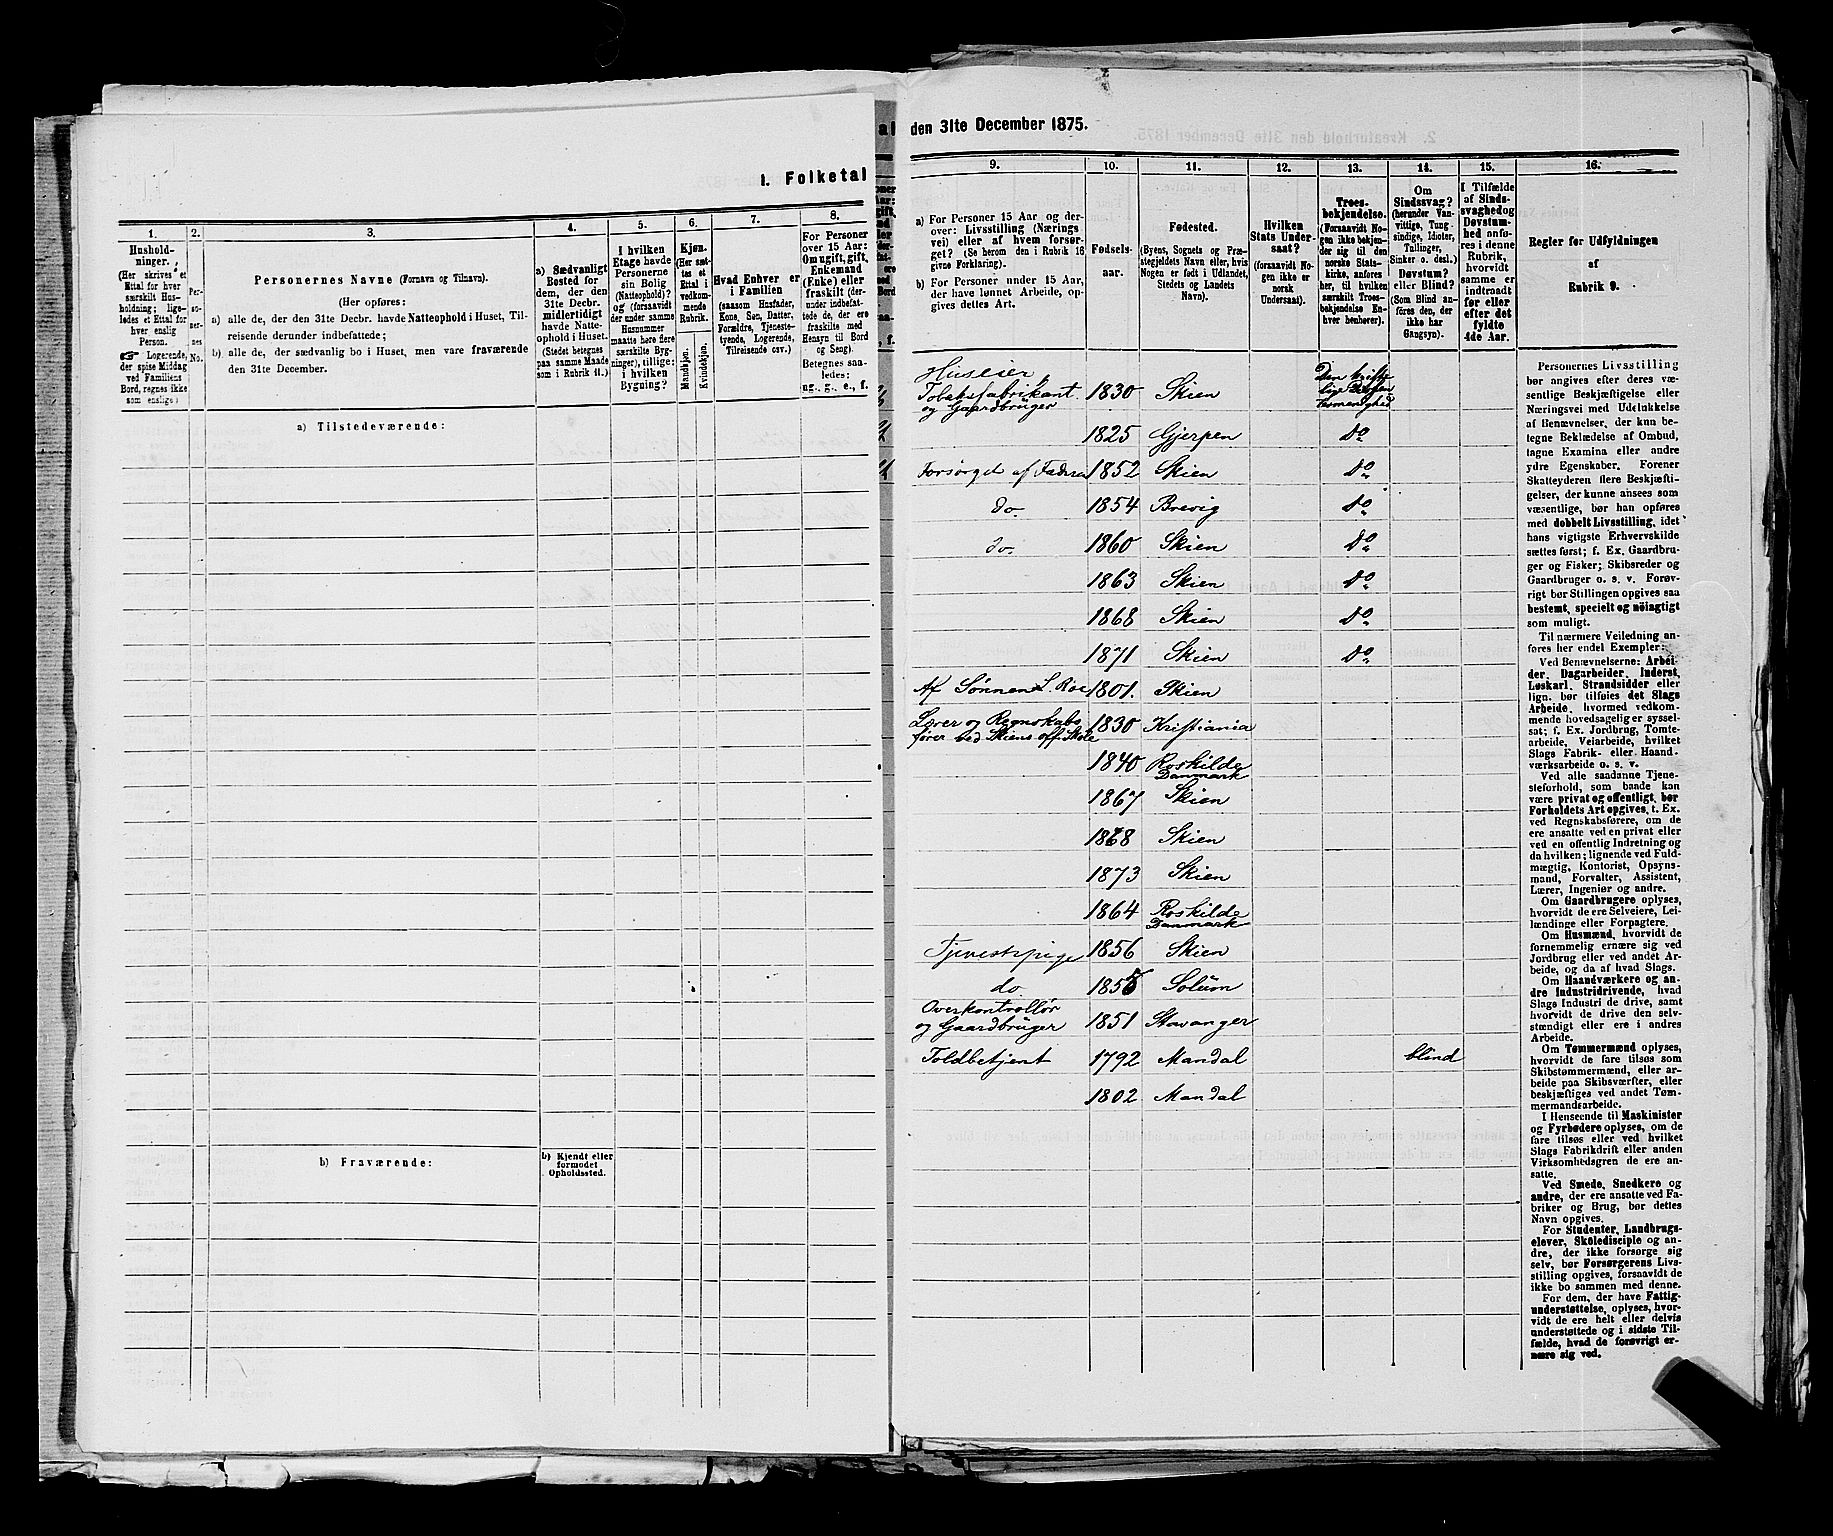 1. Folketal
1.
2.
3.
4.
5.
6.
7.
8.
Hushold-
ninger.
(Her skrives et
Ettal for hver
særskilt Hus-
holdning; lige-
ledes et Ettal for
hver enslig
Person.
☞ Logerende,
der spise Middag
ved Familiens
Bord, regnes ikke
som enslige)
Per-
so-
ner-
nes
No.
Personernes Navne (Fornavn og Tilnavn).
(Her opføres:
a) alle de, der den 31te Decbr. havde Natteophold i Huset, Til-
reisende derunder indbefattede;
b) alle de, der sædvanlig bo i Huset, men vare fraværende
den 31te December.
a) Sædvanligt
Bosted for
dem, der den
31te Decbr.
midlertidigt
havde Natte-
ophold i Huset.
(Stedet betegnes
paa samme Maade
som i Rubrik 11.)
I hvilken
Etage havde
Personerne
sin Bolig
(Natteophold)?
og (forsaavidt
der under samme
Husnummer
maatte høre flere
særskilte Byg-
ninger), tillige:
i hvilken
Bygning?
Kjøn.
(Her sæt-
tes et
Ettal i
vedkom-
mende
Rubrik.
Mandkjøn.
Kvindekjøn.
Hvad Enhver er
i Familien
(saasom Husfader,
Kone, Søn, Datter,
Forældre, Tjeneste-
tyende, Logerende,
Tilreisende osv.)
For Personer
over 15 Aar:
Om ugift, gift,
Enkemand
(Enke) eller
fraskilt (der-
under indbefat-
tede de, der ere
fraskilte med
Hensyn til Bord
og Seng).
Betegnes saa-
ledes:
ug., g., e., f.
a) Tilstedeværende:
b) Fraværende:
b) Kjendt eller
formodet
Opholdssted.
den 31te December 1875.
9.
10.
11.
12.
13.
14.
15.
16.
a) For Personer 15 Aar og der-
over: Livsstilling (Nærings-
vei) eller af hvem forsør-
get? (Se herom den i Rubrik 16
givne Forklaring).
b) For Personer under 15 Aar,
der have lønnet Arbeide, op-
gives dettes Art.
Fødsels-
aar.
Fødested.
(Byens, Sognets og Præ-
stegjeldets Navn eller, hvis
Nogen er født i Udlandet,
Stedets og Landets
Navn).
Hvilken
Stats Under-
saat?
(forsaavidt No-
gen ikke er
norsk
Undersaat).
Troes-
bekjendelse.
(Forsaavidt No-
gen ikke bekjen-
der sig til den
norske Stats-
kirke, anføres
her, til hvilken
særskilt Troes-
bekjendelse En-
hver henhører).
Om
Sindssvag?
(herunder Van-
vittige, Tung-
sindige, Idioter,
Tullinger,
Sinker o. desl.)
Døvstum?
eller Blind?
(Som Blind an-
føres den, der
ikke har
Gangsyn).
I Tilfælde
af Sinds-
svaghed og
Døvstum-
hed anfø-
res i denne
Rubrik,
hvorvidt
samme er
indtraadt
før eller
efter det
fyldte
4de Aar.
Regler for Udfyldningen
af
Rubrik 9.
Huseier,
Tobaksfabrikant 1830 Skien
og Gaardbruger
1825 Gjerpen Do
Forsørget af Faderen 1852 Skien Do
do. 1854 Brevig Do
do. 1860 Skien Do
1863 Skien Do
1868 Skien Do
1871 Skien Do
Af Sønnen 1801. Skien
Lærer og Regnskabs 1830 Kristiania
fører ved Skiens off. Skole
1840 Roskilde
Danmark
1867 Skien
1868 Skien
1873 Skien
1864 Roskilde
Danmark
Tjenestepige 1856 Skien
do. Solum
Overkontrollør
og Gaardbruger 1851 Stavanger
Toldbetjent 1792 Mandal blind
1802 Mandal
Personernes Livsstilling
bør angives efter deres væ-
sentlige Beskjæftigelse eller
Næringsvei med Udelukkelse
af Benævnelser, der kun be-
tegne Beklædelse af Ombud,
tagne Examina eller andre
ydre Egenskaber. Forener
Skatteyderen flere Beskjæfti-
gelser, der kunne ansees som
væsentlige, bør han opføres
med dobbelt Livsstilling, idet
hans vigtigste Erhvervskilde
sættes først; f. Ex. Gaardbru-
ger og Fisker; Skibsreder og
Gaardbruger o. s. v. Forøv-
rigt bør Stillingen opgives saa
bestemt, specielt og nøiagtigt
som muligt.
Til nærmere Veiledning an-
føres her endel Exempler:
Ved Benævnelserne: Arbei-
der, Dagarbeider, Inderst,
Løskarl, Strandsidder eller
lign. bør tilføies det Slags
Arbeide, hvormed vedkom-
mende hovedsagelig er syssel-
sat; f. Ex. Jordbrug, Tomte-
arbeide, Veiarbeide, hvilket
Slags Fabrik- eller Haand-
værksarbeide o. s. v.
Ved alle saadanne Tjene-
steforhold, som baade kan
være privat og offentligt, bør
Forholdets Art opgives, t. Ex.
ved Regnskabsførere, om de
ere ansatte ved en privat eller
ved en offentlig Indretning og
da hvilken; lignende ved Fuld-
mægtig, Kontorist, Opsyns-
mand, Forvalter, Assistent,
Lærer, Ingeniør og andre.
Om Gaardbrugere oplyses,
hvorvidt de ere Selveiere, Lei-
lændinge eller Forpagtere.
Om Husmænd, hvorvidt de
fornemmelig ernære sig ved
Jordbrug eller ved andet Ar-
beide, og da af hvad Slags.
Om Haandværkere og an-
dre Industridrivende, hvad
Slags Industri de drive, samt
hvorvidt de drive den selv-
stændigt eller ere i andres
Arbeide.
Om Tømmermænd oplyses,
hvorvidt de fare tilsøs som
Skibstømmermænd, eller ar-
beide paa Skibsværfter, eller
beskjæftiges ved andet Tøm-
mermandsarbeide.
I Henseende til Maskinister
og Fyrbødere oplyses, om de
fare tilsøs eller ved hvilket
Slags Fabrikdrift eller anden
Virksomhedsgren de ere an-
satte.
Ved Smede, Snedkere og
andre, der ere ansatte ved Fa-
briker og Brug, bør dettes
Navn opgives.
For Studenter, Landbrugs-
elever, Skoledisciple og an-
dre, der ikke forsørge sig
selv, bør Forsørgerens Livs-
stilling opgives, forsaavidt de
ikke bo sammen med denne.
For dem, der have Fattig-
understøttelse, oplyses, hvor-
vidt de ere helt eller delvis
understøttede og i sidste Til-
fælde, hvad de forøvrigt er-
nære sig ved.